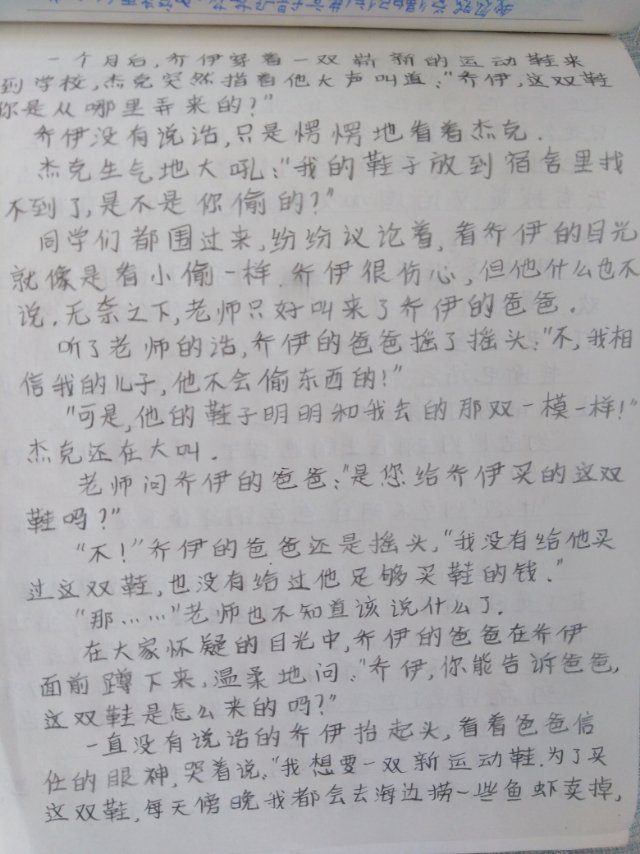 一个月后,乔伊穿着一双崭新的运动鞋来
到学校,杰克突然指着他大声叫道:"乔伊,这双鞋
你是从哪里弄来的?"
乔伊没有说话,只是愣愣地看着杰克.
杰克生气地大吼:"我的鞋子放到宿舍里找
不到了,是不是你偷的?"
同学们都围过来,纷纷议论着,看乔伊的目光
就像是看小偷一样.乔伊很伤心,但他什么也不
说.无奈之下,老师只好叫来了乔伊的爸爸.
听了老师的话,乔伊的爸爸摇了摇头:"不,我相
信我的儿子,他不会偷东西的!"
"可是,他的鞋子明明和我丢的那双一模一样!"
杰克还在大叫.
老师问乔伊的爸爸:"是您给乔伊买的这双
鞋吗?"
"不!"乔伊的爸爸还是摇头,"我没有给他买
过这双鞋,也没有给过他足够买鞋的钱."
"那……"老师也不知道该说什么了.
在大家怀疑的目光中,乔伊的爸爸在乔伊
面前蹲下来,温柔地问:"乔伊,你能告诉爸爸,
这双鞋是怎么来的吗?"
一直没有说话的乔伊抬起头,看着爸爸信
任的眼神,哭着说:"我想要一双新运动鞋.为了买
这双鞋,每天傍晚我都会去海边捞一些鱼虾卖掉,